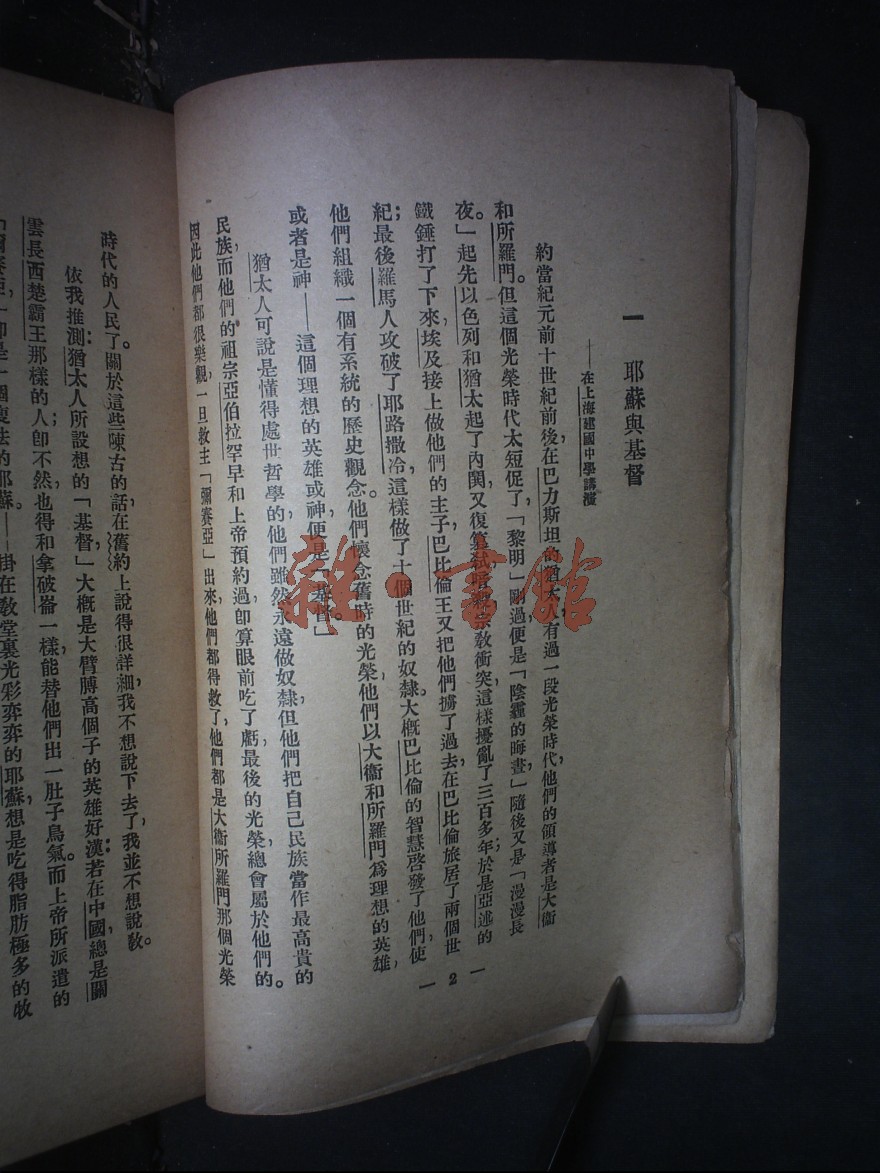 一 耶蘇與基督
——在上海建國中學講演
約當紀元前十世紀前後，在巴力斯坦的猶太人，有過一段光榮時代，他們的領導者是大衞
和所羅門。但這個光榮時代太短促了，「黎明」剛過，便是「陰霾的晦晝」，隨後又是「漫漫長
夜。」起先以色列和猶太起了內鬨，又復篡弑暗殺，宗教衝突，這樣擾亂了三百多年；於是亞述的
鐵錘打了下來，埃及接上做他們的主子，巴比倫王又把他們擄了過去，在巴比倫旅居了兩個世
紀；最後羅馬人攻破了耶路撒冷，這樣做了十個世紀的奴隸。大概巴比倫的智慧啓發了他們，使
他們組織一個有系統的歷史觀念。他們懷念舊時的光榮，他們以大衞和所羅門爲理想的英雄，
或者是神——這個理想的英雄或神便是「基督」
猶太人可說是懂得處世哲學的，他們雖然永遠做奴隸，但他們把自己民族當作最高貴的
民族，而他們的祖宗亞伯拉罕早和上帝預約過，卽算眼前吃了虧，最後的光榮總會屬於他們的。
因此他們都很樂觀，一旦救主「彌賽亞」出來，他們都得救了，他們都是大衞所羅門那個光榮
— 2 —
時代的人民了。關於這些陳古的話，在舊約上說得很詳細，我不想說下去了，我並不想說教。
依我推測：猶太人所設想的「基督」大概是大臂膊高個子的英雄好漢：若在中國，總是關
雲長西楚霸王那樣的人；卽不然，也得和拿破崙一樣，能替他們出一肚子鳥氣。而上帝所派遣的
「彌賽亞，」卽是一個復活的耶蘇。——掛在敎堂裏光彩弈弈的耶蘇，想是吃得脂肪極多的牧
雜·書館